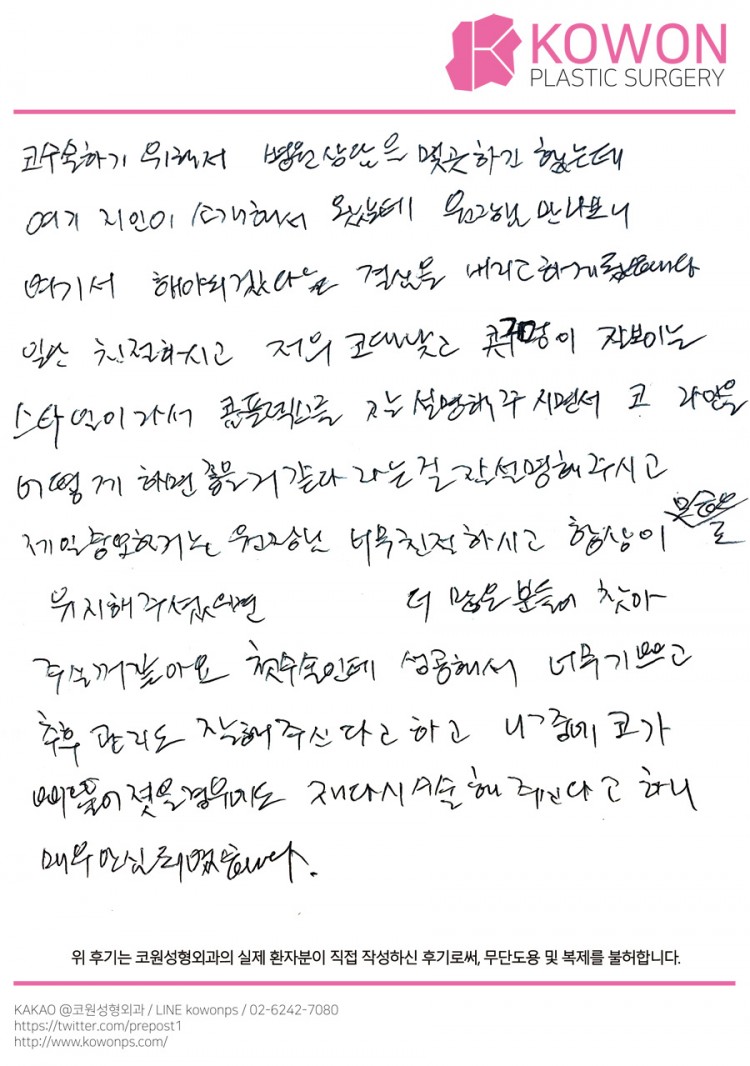 KOWON
PLASTIC SURGERY
코수술하기 위해서 병원상담을 몇곳하긴 했는데
여기 지인이 소개해서 왔는데 원장님 만나보니
여기서 해야되겠다는 결심을 내리고하게되었습니다
일단 친절하시고 저의 코대낮고 콧구멍이 잘보이는
스타일이라서 콤플렉스를 설명해주시면서 코 라인을
어떻게 하면 좋을거 같다 라는걸 잘설명해주시고
제일중요한거는 원장님 너무친절하시고 항상이 모습으로
유지해주셨으면 더 많은분들이 찾아
주실꺼같아요 첫수술인데 성공해서 너무기쁘고
추후 관리도 잘해주신다고하고 나중에 코가
삐뚤어졋을경우에도 재다시시술해 주신다고 하니
매우안심되였습니다.
위 후기는 코원성형외과의 실제 환자분이 직접 작성하신 후기로써, 무단도용 및 복제를 불허합니다.
KAKAO @코원성형외과 / LINE kowonps / 02-6242-7080
https://twitter.com/prepost1
http://www.kowonps.com/